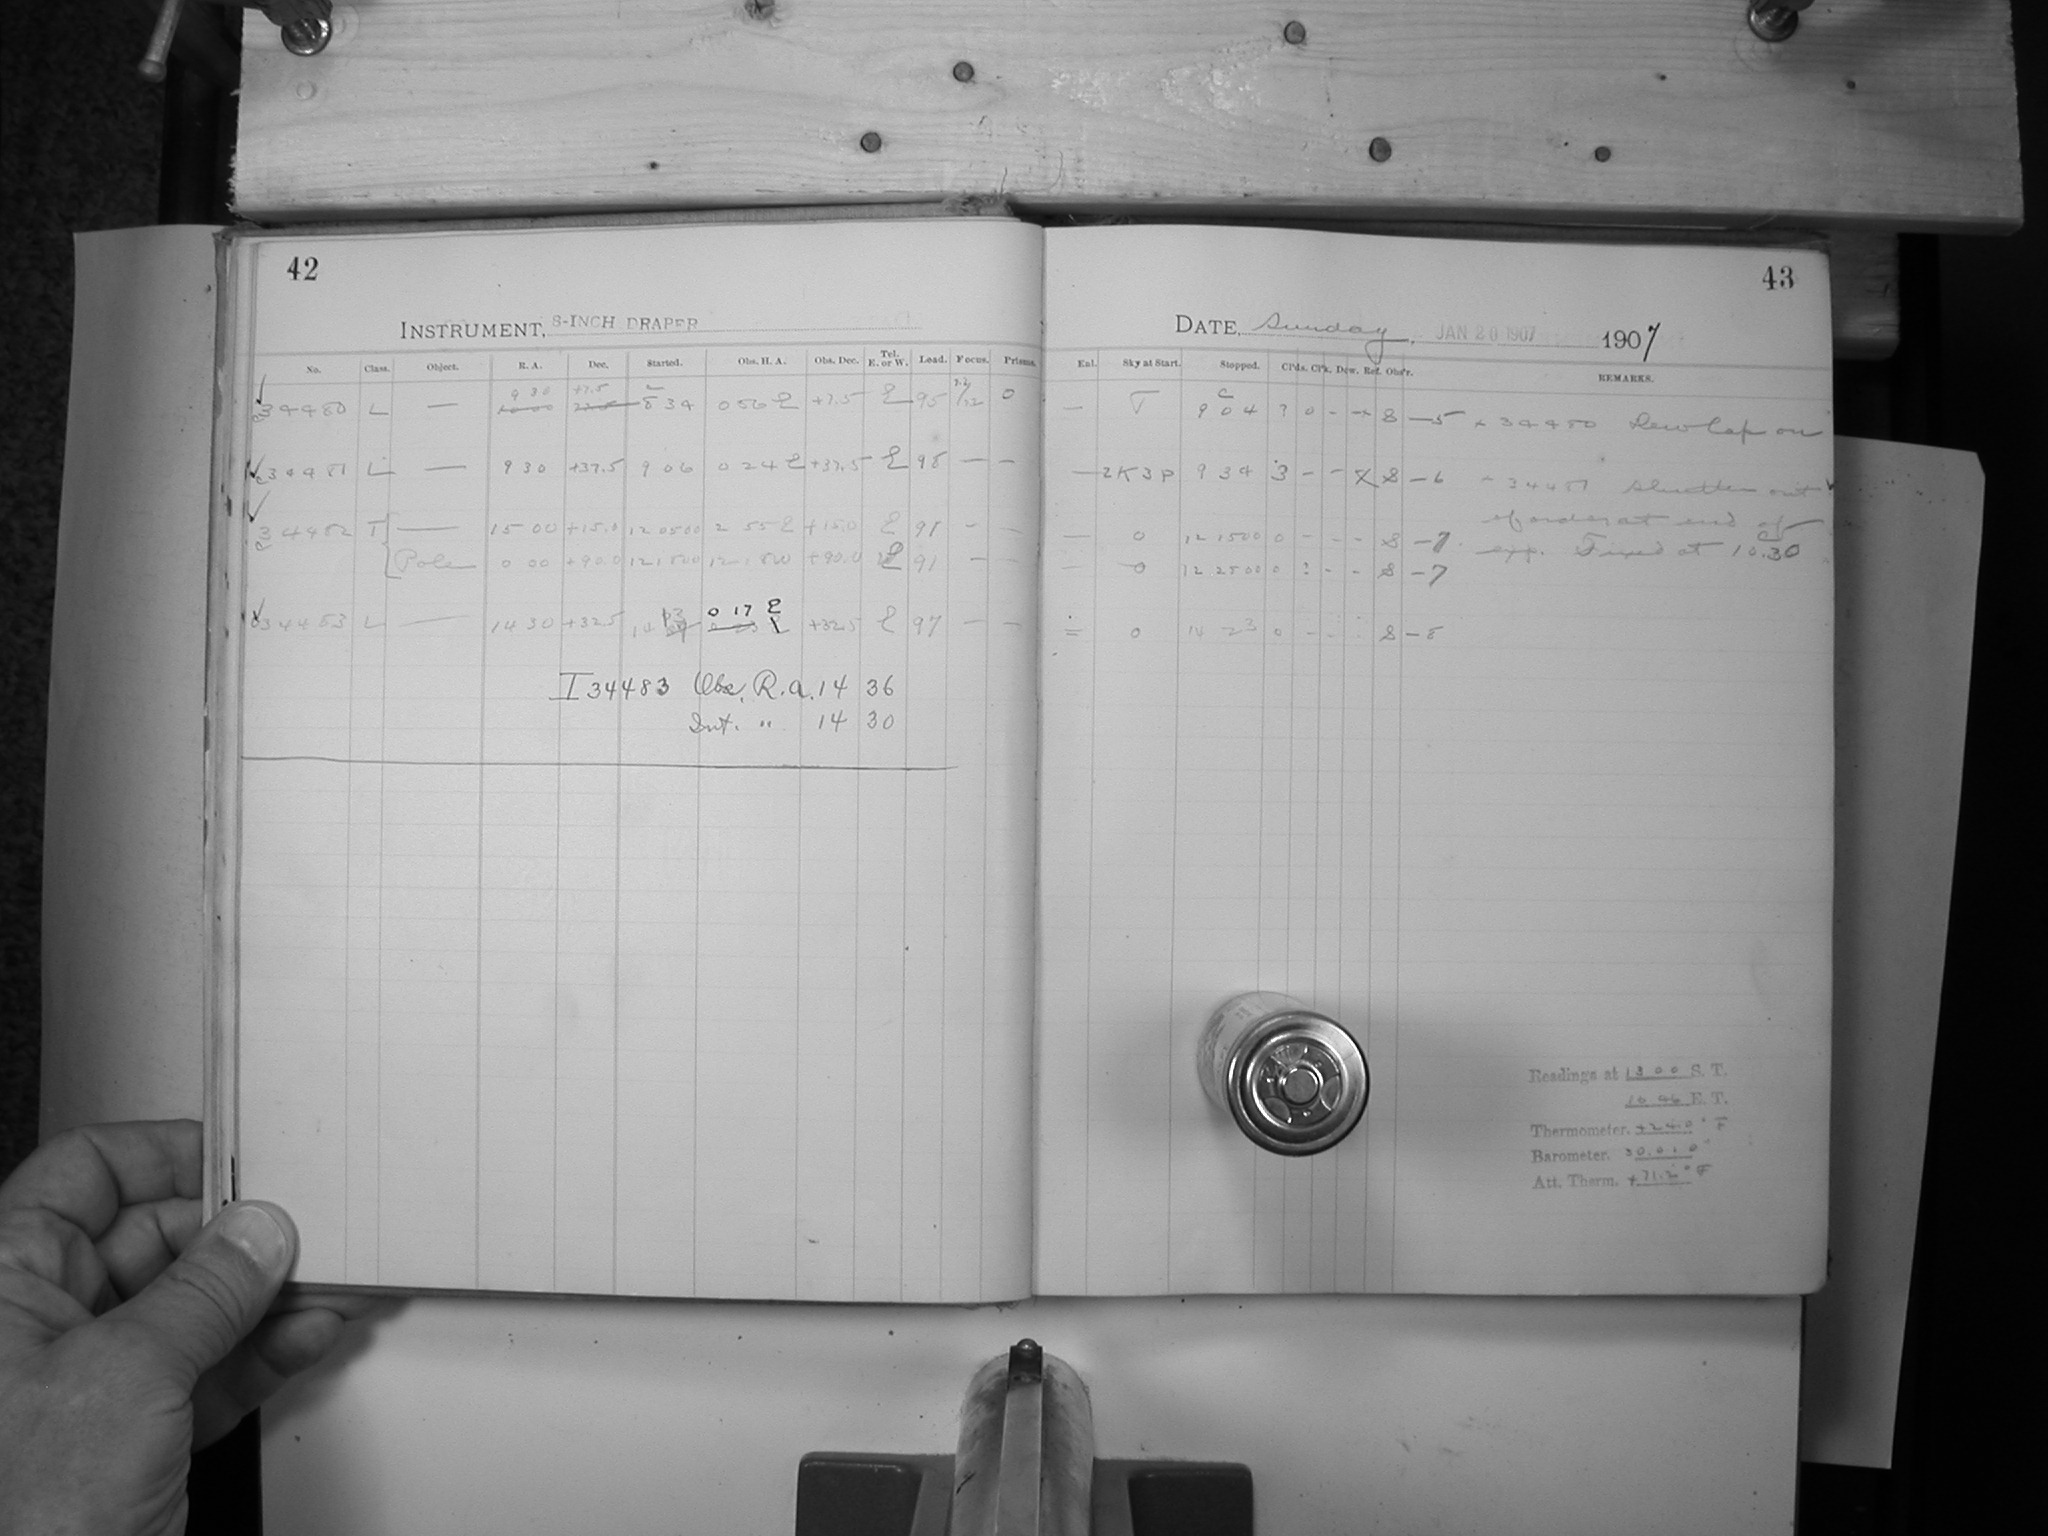 42
INSTRUMENT, 8-INCH DRAPER
No. Class. Object. R. A. Dec. Started. Obs. H. A. Obs. Dec. Tel. E. or W. Load. Focus. Prisms.
9 30 +7.5
34480 L — 10 00 8 34 0 56 E +7.5 E 95 0
34481 L — 9 30 +37.5 9 06 0 24 E +37.5 E 98 — —
34482 T — 15 00 +15.0 12 05 00 2 55 E +15.0 E 91 — —
Pole 0 00 +90.0 12 15 00 +90.0 91 — —
0 17 E
34483 L — 14 30 +32.5 +32.5 E 97 — —
I 34483 Obs. R.a. 14 36
Int. " 14 30
43
DATE, Sunday, JAN 20 1907 1907
Enl. Sky at Start. Stopped. Cl'ds. Cl'k. Dew. Ref. Obs'r. REMARKS.
— T 9 04 ? 0 - - x S — 5 x 34480 Dew Cap on
— 2K3P 9 34 3 - - x S — 6 x 34481 Shutter out
of order at end of
exp. Fixed at 10.30
— 0 12 15 00 0 - - - S — 7
— 0 12 25 00 0 : - - S — 7
= 0 14 23 0 S — 8
Readings at 13 00 S. T.
16 46 E. T.
Thermometer. +24.0° F
Barometer. 30.010
Att. Therm. +71.2° F